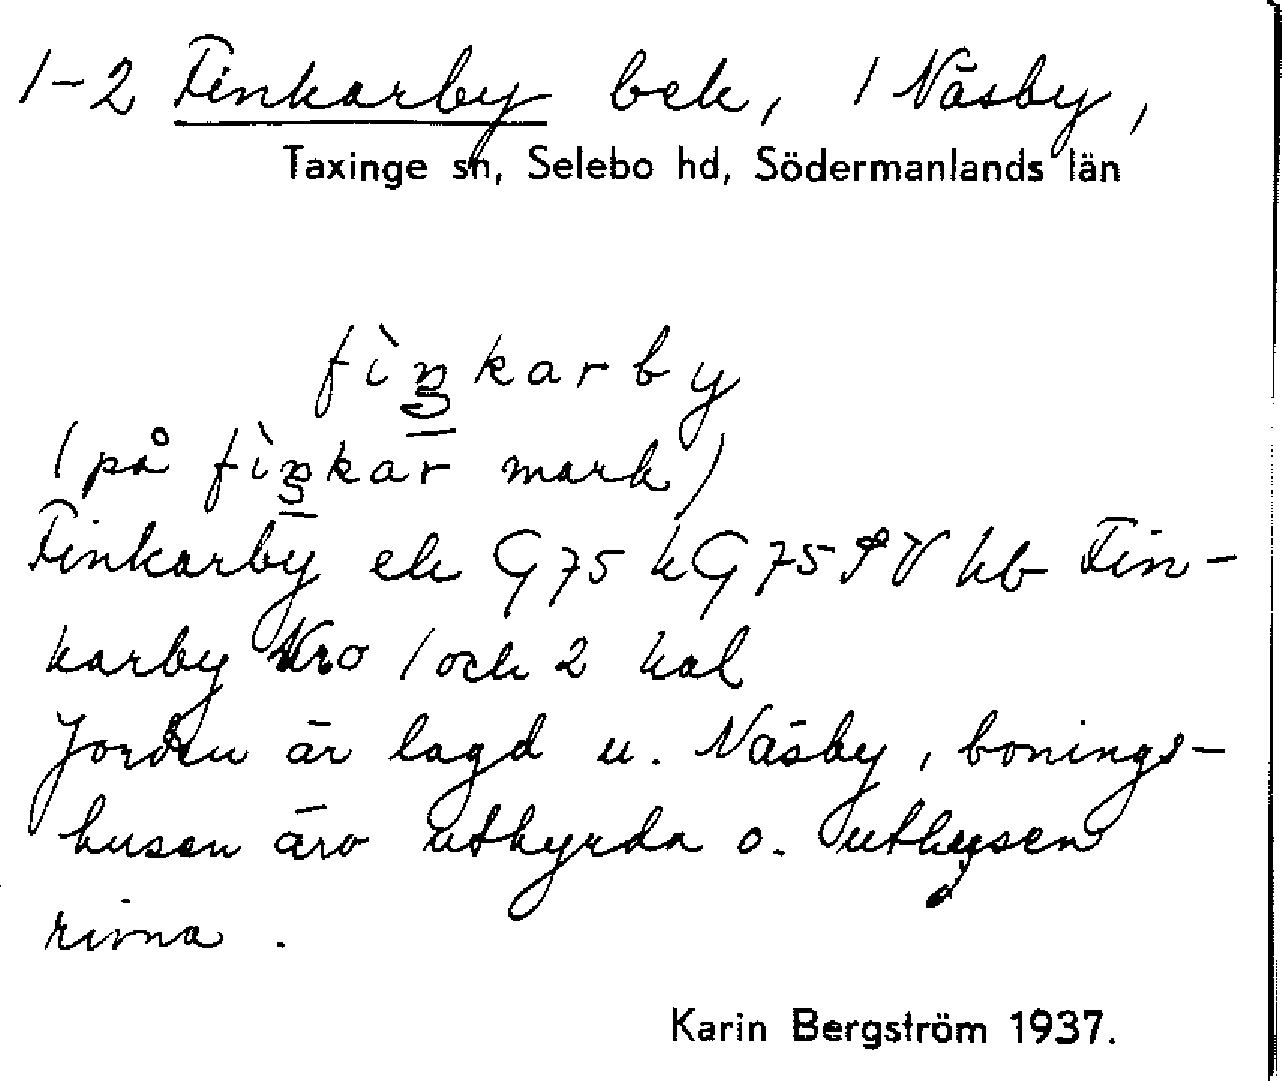 1-2 Finkarby bek, 1 Näsby,
Taxinge sn, Selebo hd, Södermanlands län
fìŋkarby
(på fìŋkar mark)
Finkarby ek G75 kG75 hb Fin-
karby Nro 1 och 2 kal
Jorden är lagd u. Näsby, bonings-
husen äro uthyrda o. uthusen
rivna.
Karin Bergström 1937.